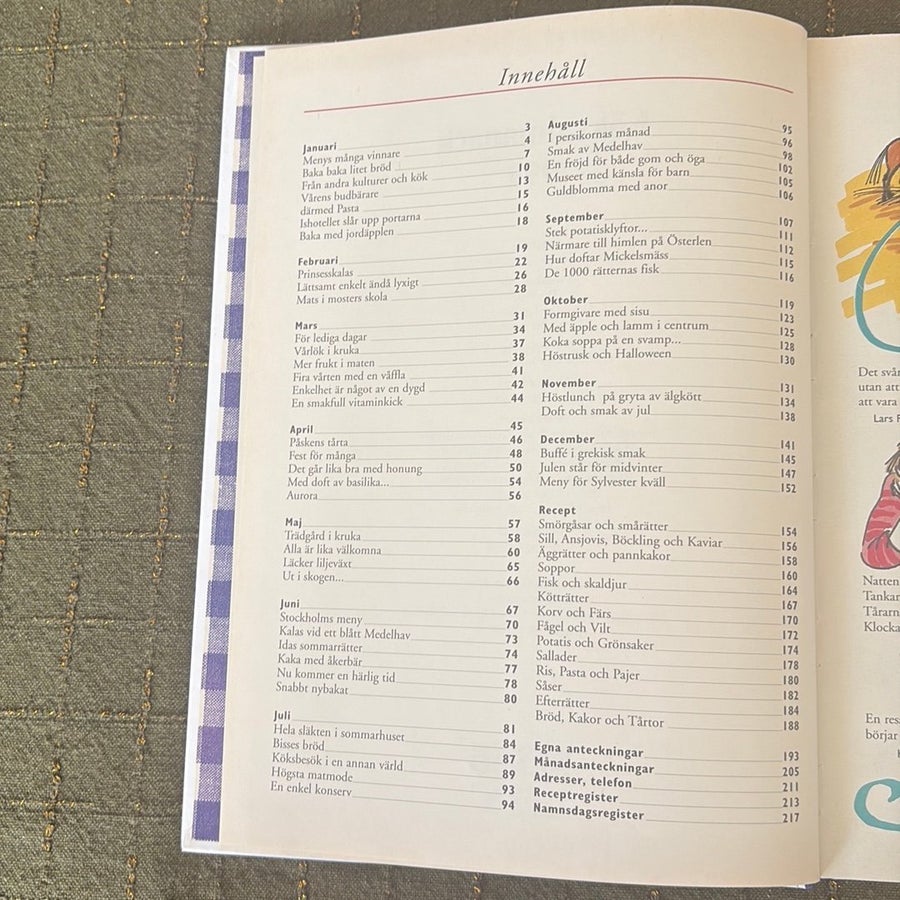 Innehåll
Januari 3
Menys många vinnare 4
Baka baka litet bröd 7
Från andra kulturer och kök 10
Vårens budbärare 13
därmed Pasta 15
Ishotellet slår upp portarna 16
Baka med jordäpplen 18
Februari 19
Prinsesskalas 22
Lättsamt enkelt ändå lyxigt 26
Mats i mosters skola 28
Mars 31
För lediga dagar 34
Vårlök i kruka 37
Mer frukt i maten 38
Fira vårten med en våffla 41
Enkelhet är något av en dygd 42
En smakfull vitaminkick 44
April 45
Påskens tårta 46
Fest för många 48
Det går lika bra med honung 50
Med doft av basilika... 54
Aurora 56
Maj 57
Trädgård i kruka 58
Alla är lika välkomna 60
Läcker liljeväxt 65
Ut i skogen... 66
Juni 67
Stockholms meny 70
Kalas vid ett blått Medelhav 73
Idas sommarrätter 74
Kaka med åkerbär 77
Nu kommer en härlig tid 78
Snabbt nybakat 80
Juli 81
Hela släkten i sommarhuset 84
Bisses bröd 87
Köksbesök i en annan värld 89
Högsta matmode 93
En enkel konserv 94
Augusti 95
I persikornas månad 96
Smak av Medelhav 98
En fröjd för både gom och öga 102
Museet med känsla för barn 105
Guldblomma med anor 106
September 107
Stek potatisklyftor... 111
Närmare till himlen på Österlen 112
Hur doftar Mickelsmäss 115
De 1000 rätternas fisk 116
Oktober 119
Formgivare med sisu 123
Med äpple och lamm i centrum 125
Koka soppa på en svamp... 128
Höstrusk och Halloween 130
November 131
Höstlunch på gryta av älgkött 134
Doft och smak av jul 138
December 141
Buffé i grekisk smak 145
Julen står för midvinter 147
Meny för Sylvester kväll 152
Recept
Smörgåsar och smårätter 154
Sill, Ansjovis, Böckling och Kaviar 156
Äggrätter och pannkakor 158
Soppor 160
Fisk och skaldjur 164
Kötträtter 167
Korv och Färs 170
Fågel och Vilt 172
Potatis och Grönsaker 174
Sallader 178
Ris, Pasta och Pajer 180
Såser 182
Efterrätter 184
Bröd, Kakor och Tårtor 188
Egna anteckningar 193
Månadsanteckningar 205
Adresser, telefon 211
Receptregister 213
Namnsdagsregister 217
Det svår
utan att
att vara
Lars F
Natten
Tankar
Tårarn
Klocka
En res
börjar